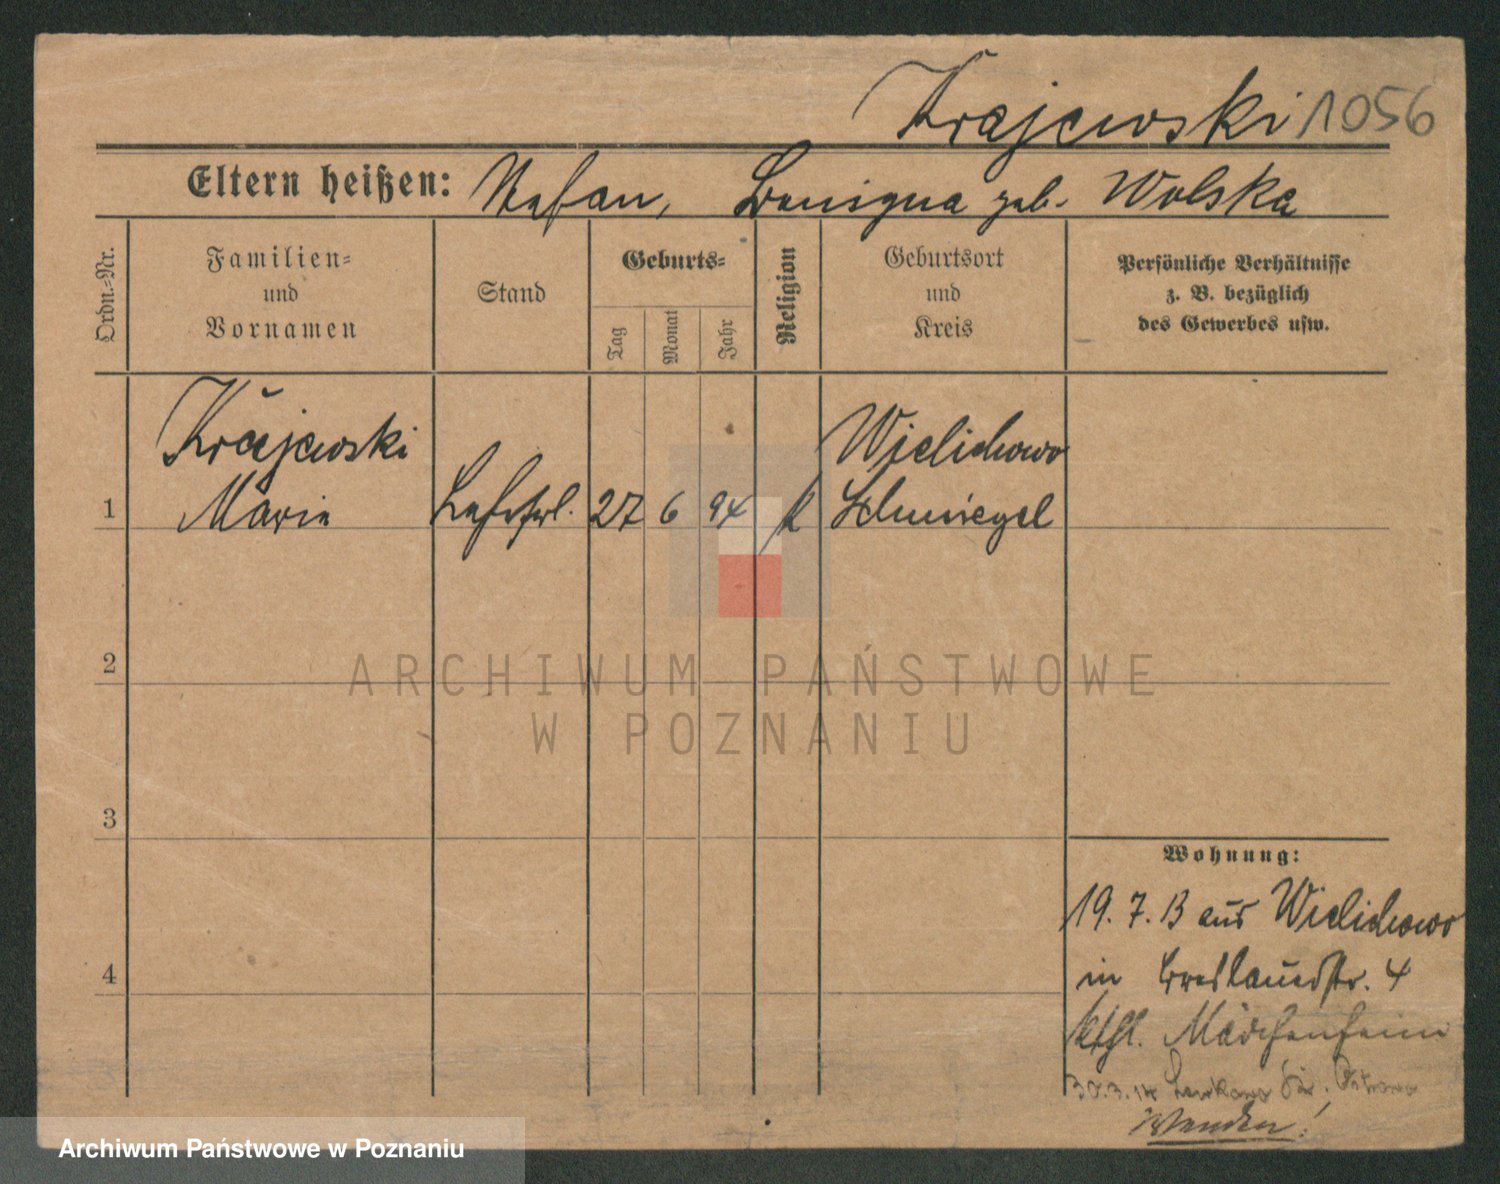 Krajewski 1056
Eltern heißen: Stefan, Benigna geb. Wolska
Ordn.-Nr.
Familien-
und
Vornamen
Stand
Geburts-
Tag
Monat
Jahr
Religion
Geburtsort
und
Kreis
Persönliche Verhältnisse
z. B. bezüglich
des Gewerbes usw.
Krajewski Wielichowo
1 Marie 27 6 94 k Schmiegel
2
ARCHIWUM PAŃSTWOWE
W POZNANIU
3
Wohnung:
19. 7. 13 aus Wielichowo
in Breslauerstr. 4
4
kthl. Mädchenheim
30.3.14 Ostrowo
Wenden!
Archiwum Państwowe w Poznaniu